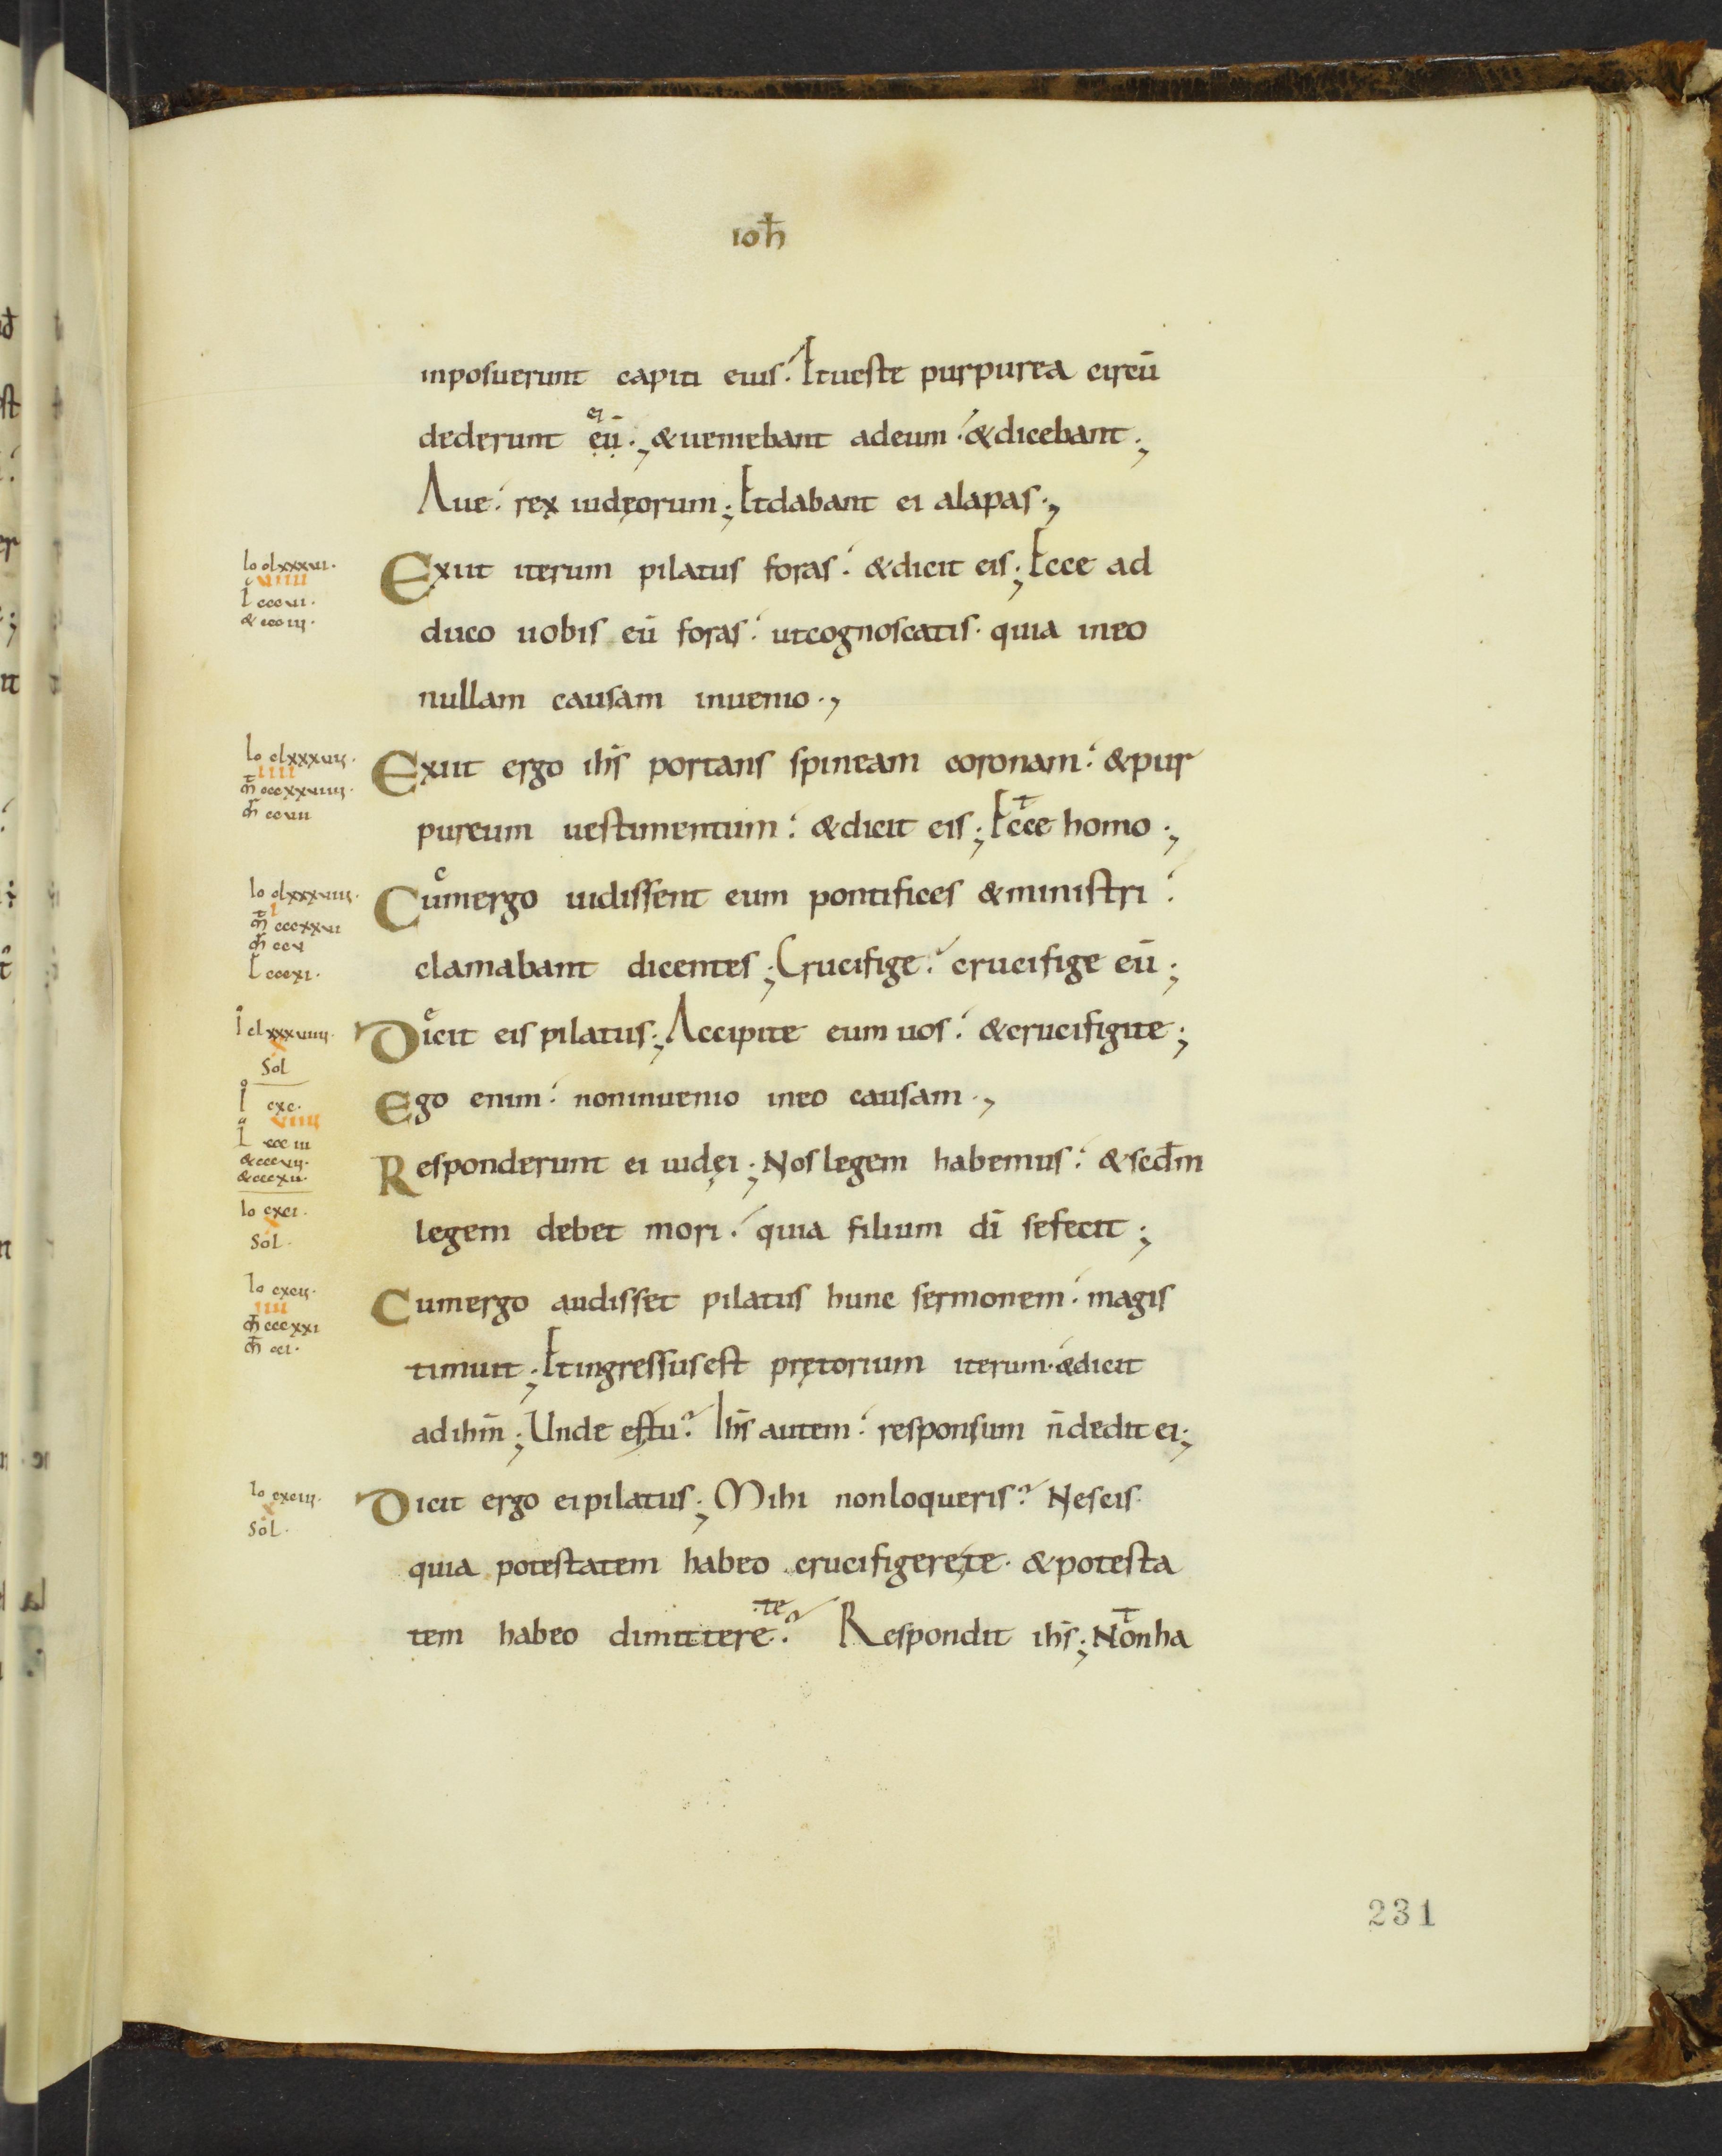 ioh̄
inposuerunt capiti eius. Et ueste purpurea circū
ei
dederunt eū.; & ueniebant ad eum. & dicebant;
Aue. rex iudęorum; Et dabant ei alapas.,
Exiit iterum pilatus foras. & dicit eis; Ecce ad
duco uobis eū foras. ut cognoscatis. quia in eo
nullam causam inuenio.,
Exiit ergo ihs̄ portans spineam coronam. & pur
pureum uestimentum. & dicit eis; Ecce homo.;
Cum ergo uidissent eum pontifices & ministri.
clamabant dicentes; Crucifige. crucifige eū;
Dicit eis pilatus; Accipite eum uos. & crucifigite;
Ego enim. non inuenio in eo causam.,
Responderunt ei iudęi; Nos legem habemus. & scd̄m
legem debet mori. quia filium dī se fecit;
Cum ergo audisset pilatus hunc sermonem. magis
timuit; Et ingressus est pretorium iterum. & dicit
ad ihm̄; Unde es tu? Ihs̄ autem. responsum n̄ dedit ei;
Dicit ergo ei pilatus; Mihi non loqueris? Nescis.
quia potestatem habeo crucifigere te. & potesta
te
tem habeo dimittere? Respondit ihs̄; Non ha
Io clxxxvi.
viiii
L cccvi.
& ccciii.
Io clxxxvii.
iiii
m̄ cccxxviiii.
m̄ ccvii
Io clxxxviii.
i
m̄ cccxxvi
m̄ ccv
L cccxi.
I clxxxviiii.
x
Sol
I cxc.
viiii
L ccciii
& cccvii.
& cccxii.
Io cxci.
x
Sol.
Io cxcii.
iiii
m̄ cccxxi
m̄ cci.
Io cxciii.
x
Sol.
231